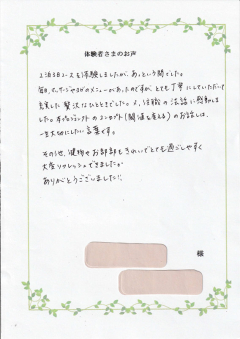 体験者さまのお声
2泊3日コースを体験しましたが、あっという間でした。
毎日、マッサージやヨガのメニューがあったのですが、とても丁寧にしていただいて
充実した贅沢なひとときでした。又、住職の法話に感動しま
した。プロジェクトのコンセプト（開運を考える）のお話しは、
一生大切にしたい言葉です。
その他、建物やお部屋もきれいでとても過ごしやすく
大変リフレッシュできました。
ありがとうございました!!
様